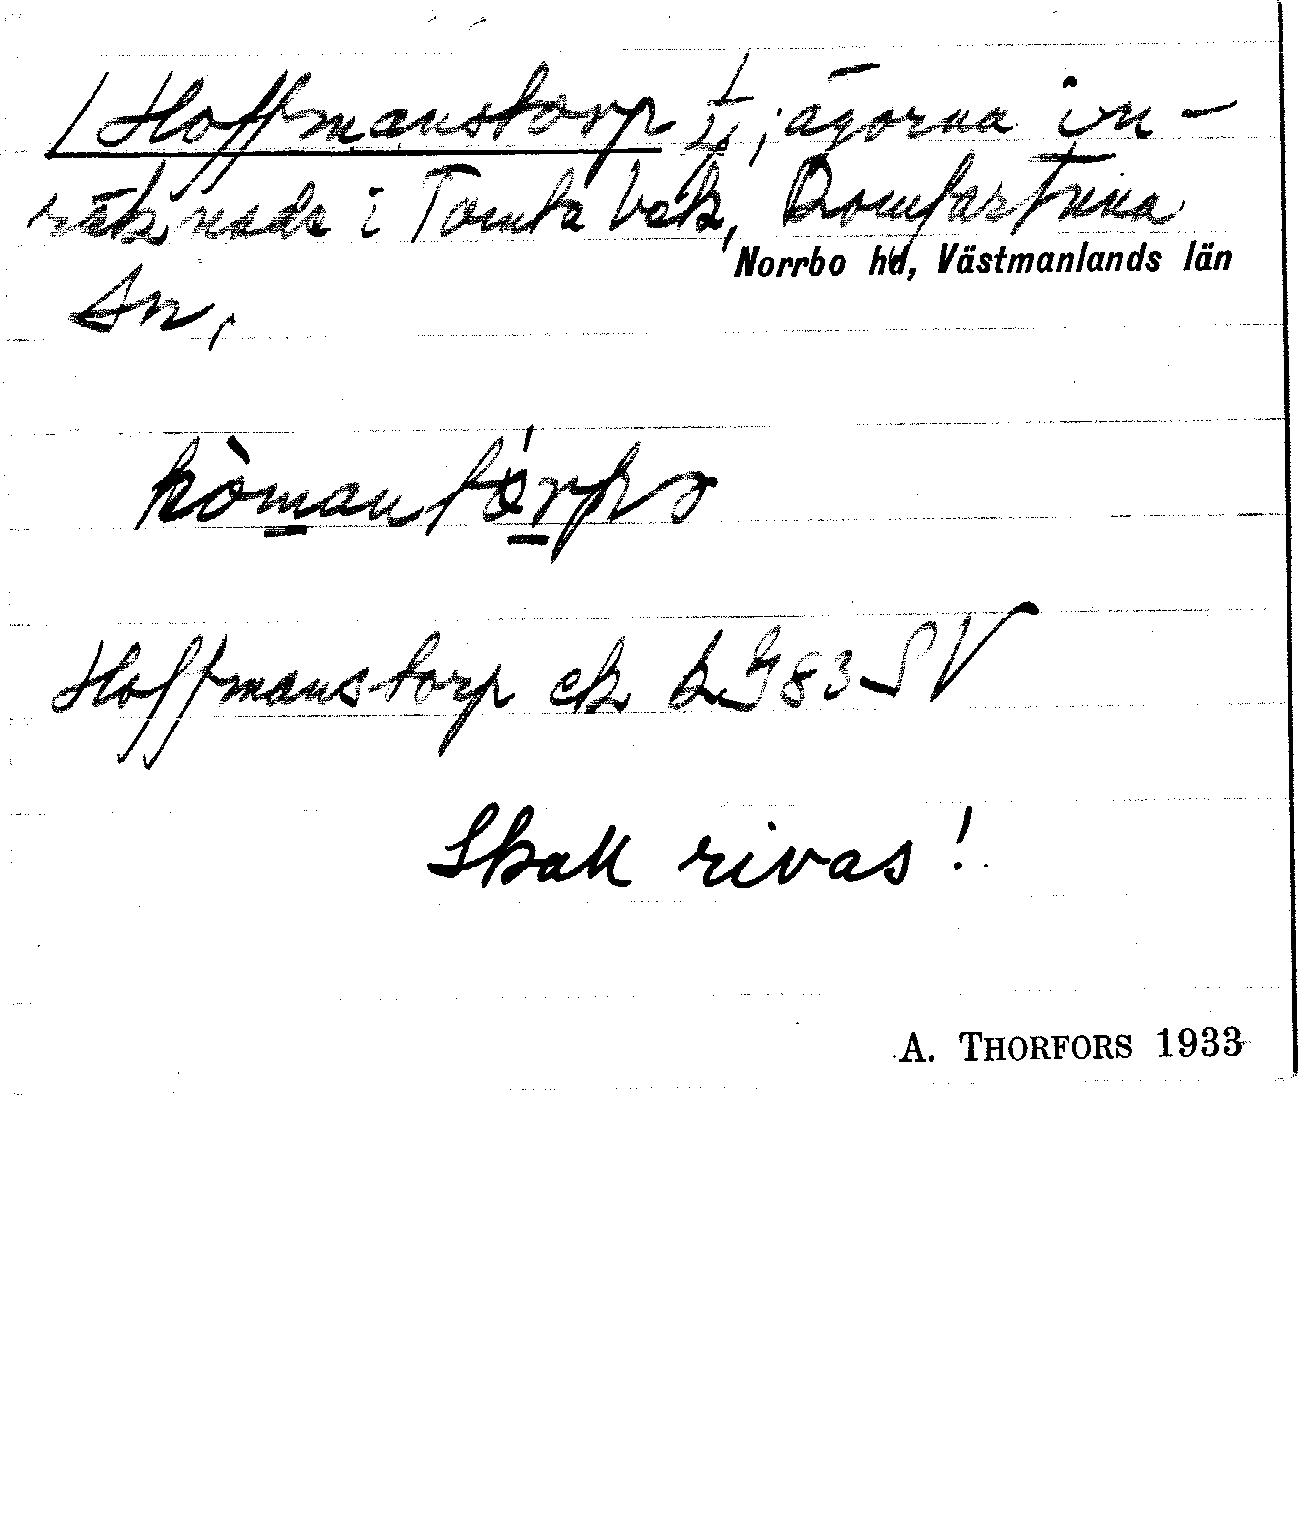 /Hoffmanstorp ägorna in-
räknade i Tomta bek, Romfartuna
Norrbo hd, Västmanlands län
sn,
Hoffmanstorp ek 83 SV
Skall rivas!
A. THORFORS 1933